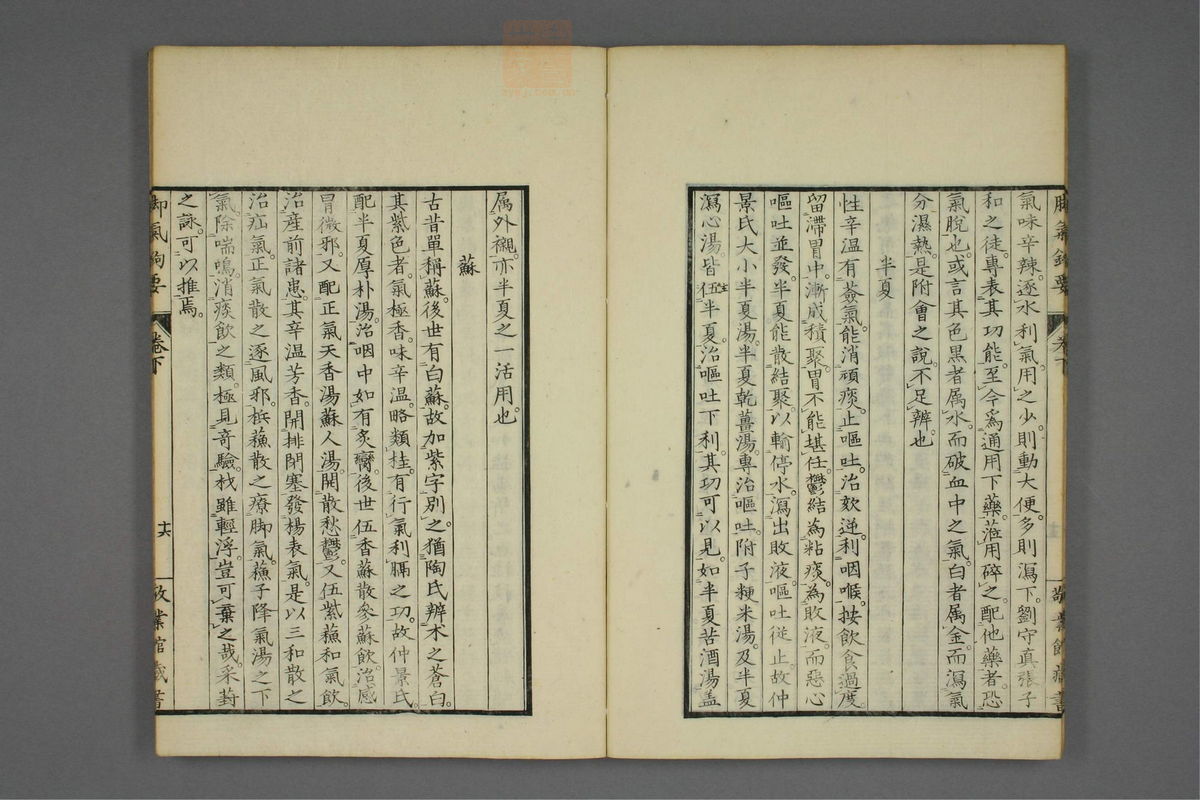 氣味辛辣。逐水利氣。用之少則動大便。多則瀉下。劉守真張子
和之徒。專表其功能。至今爲通用下藥。然用碎之配他藥者。恐
氣脫也。或言其色黑者属水。而破血中之氣。白者属金。而瀉氣
分濕熱。是附會之說。不足辨也。
半夏
性辛温有蘞氣。能消頑痰。止嘔吐。治欬逆。利咽喉。按飲食過度。
留滯胃中。漸成積聚。胃不能堪任。鬱結為粘痰。為敗液。而惡心
嘔吐並發。半夏能散結聚。以輸停水。瀉出敗液。嘔吐従止。故仲
景氏大小半夏湯。半夏乾薑湯。專治嘔吐。附子粳米湯。及半夏
瀉心湯。皆伍半夏。治嘔吐下利。其功可以見。如半夏苦酒湯。盖
属外襯。亦半夏之一活用也。
蘇
古昔單稱蘇。後世有白蘇。故加紫字別之。猶陶氏辨术之蒼白。
其紫色者。氣極香。味辛温。略類桂。有行氣利膈之功。故仲景氏
配半夏厚朴湯。治咽中如有炙臠。後世伍香蘇散參蘇飲。治感
冒微邪。又配正氣天香湯蘇人湯。開散愁鬱。又伍紫蘓和氣飲。
治産前諸患。其辛温芳香。開排閉塞。發楊表氣。是以三和散之
治疝氣。正氣散之逐風邪。梹蘓散之療脚氣。蘓子降氣湯之下
氣除喘鳴。消痰飲之類。極見竒驗。材雖輕浮。豈可棄之哉。采葑
之詠。可以推焉。
卷下
十六